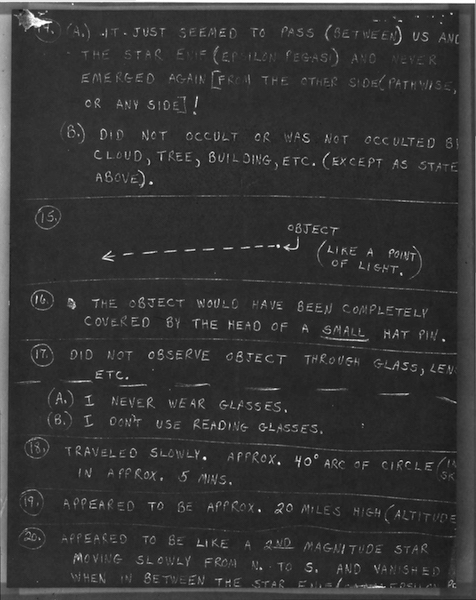 14. (A.) IT JUST SEEMED TO PASS (BETWEEN) US AND
THE STAR ENIF (EPSILON PEGASI) AND NEVER
EMERGED AGAIN [FROM THE OTHER SIDE (PATHWISE,
OR ANY SIDE]!
(B.) DID NOT OCCULT OR WAS NOT OCCULTED BY
CLOUD, TREE, BUILDING, ETC. (EXCEPT AS STATE
ABOVE).
15.
OBJECT
(LIKE A POINT
OF LIGHT.)
16. THE OBJECT WOULD HAVE BEEN COMPLETELY
COVERED BY THE HEAD OF A SMALL HAT PIN.
17. DID NOT OBSERVE OBJECT THROUGH GLASS, LENS
ETC.
(A.) I NEVER WEAR GLASSES.
(B.) I DON'T USE READING GLASSES.
18. TRAVELED SLOWLY. APPROX. 40° ARC OF CIRCLE (IN
SK
IN APPROX. 5 MINS.
19. APPEARED TO BE APPROX. 20 MILES HIGH (ALTITUDE
20. APPEARED TO BE LIKE A 2ND MAGNITUDE STAR
MOVING SLOWLY FROM N. TO S. AND VANISHED
WHEN IN BETWEEN THE STAR ENIF (EPSILON